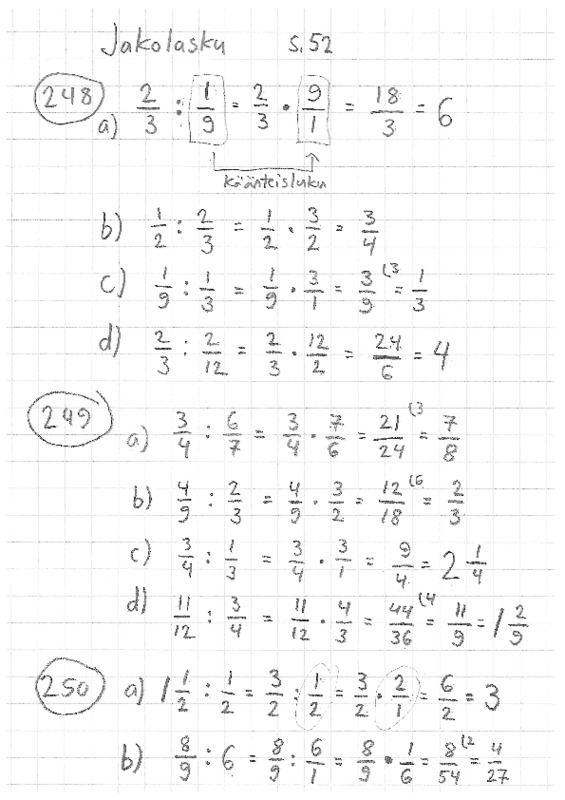 Jakolasku s. 52
248 a) 2/3 : 1/9 = 2/3 · 9/1 = 18/3 = 6
käänteisluku
b) 1/2 : 2/3 = 1/2 · 3/2 = 3/4
c) 1/9 : 1/3 = 1/9 · 3/1 = 3/9 (3 = 1/3
d) 2/3 : 2/12 = 2/3 · 12/2 = 24/6 = 4
249 a) 3/4 : 6/7 = 3/4 · 7/6 = 21/24 (3 = 7/8
b) 4/9 : 2/3 = 4/9 · 3/2 = 12/18 (6 = 2/3
c) 3/4 : 1/3 = 3/4 · 3/1 = 9/4 = 2 1/4
d) 11/12 : 3/4 = 11/12 · 4/3 = 44/36 (4 = 11/9 = 1 2/9
250 a) 1 1/2 : 1/2 = 3/2 : 1/2 = 3/2 · 2/1 = 6/2 = 3
b) 8/9 : 6 = 8/9 : 6/1 = 8/9 · 1/6 = 8/54 (2 = 4/27